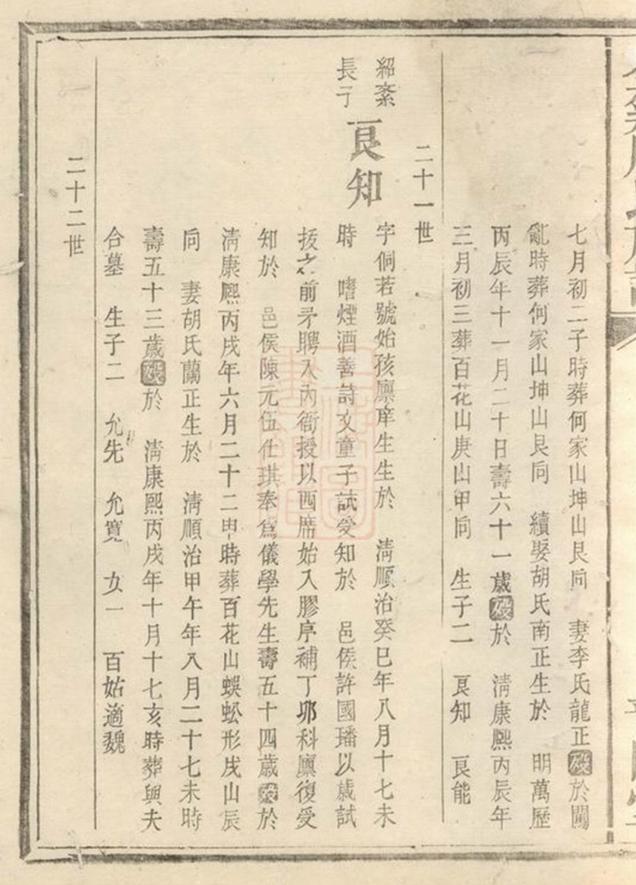 七月初二子時葬何家山坤山艮向 妻李氏龍正歿於闖
亂時葬何家山坤山艮向 續娶胡氏南正生於 明萬歷
丙辰年十一月二十日壽六十一歲歿於 淸康熙丙辰年
三月初三葬百花山庚山甲向 生子二 良知 良能
二十一世
紹素
長子
良知
字侗若號始孩廪庠生生於 淸順治癸巳年八月十七未
時 嗜煙酒善詩文童子試受知於 邑侯許國璠以歲試
拔之前矛聘入內衙授以西席始入膠庠補丁夘科廪復受
知於 邑侯陳元伍仕琪奉爲儀學先生壽五十四歲歿於
淸康熙丙戌年六月二十二申時葬百花山蜈蚣形戌山辰
向 妻胡氏蘭正生於 淸順治甲午年八月二十七未時
壽五十三歲歿於 淸康熙丙戌年十月十七亥時葬與夫
合墓 生子二 允先 允寬 女一 百姑適魏
二十二世